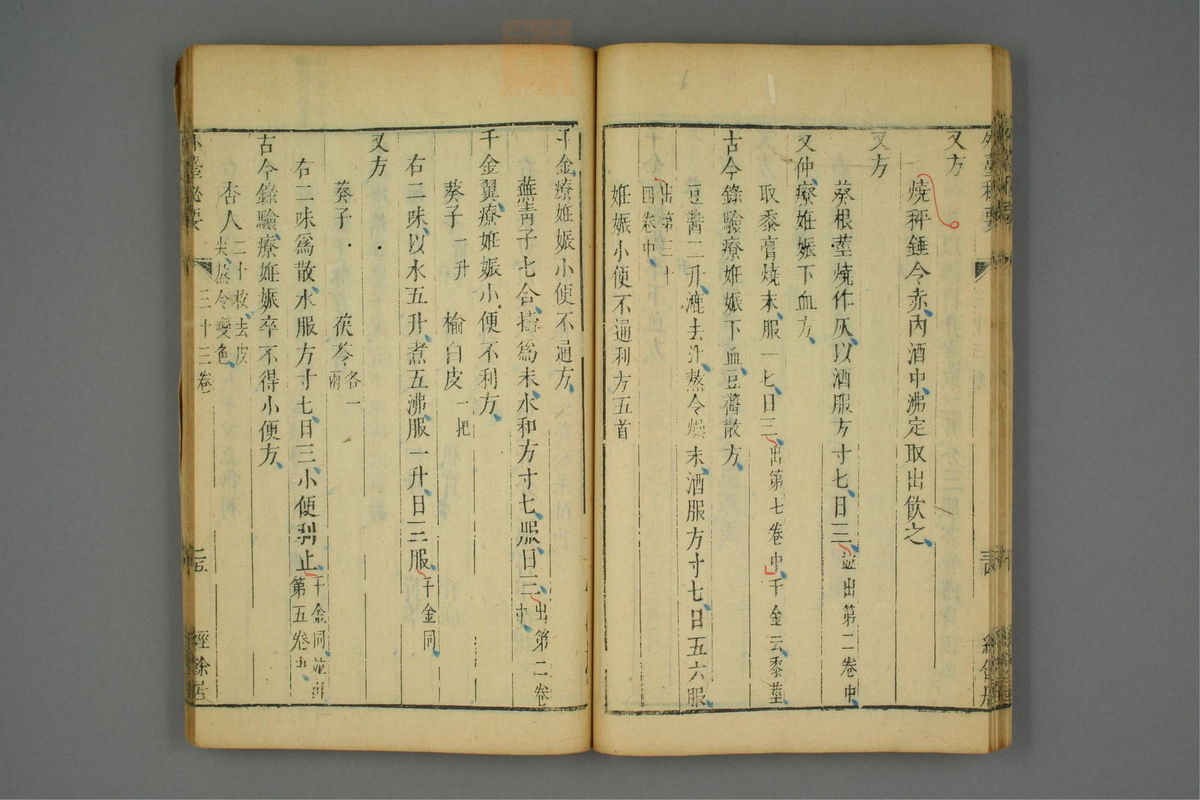 又方
燒秤錘令赤內酒中沸定取出飲之
又方
葵根莖燒作灰以酒服方寸匕日三並出第二卷中
又仲療姙娠下血方
取黍膏燒末服一匕日三出第七卷中千金云黍莖
古今錄驗療姙娠下血豆醬散方
豆醬二升漉去汁蒸令燥末酒服方寸匕日五六服
出第三十
四卷中
姙娠小便不通利方五首
千金療姙娠小便不通方
蕪菁子七合擣爲末水和方寸匕服日三出第二卷
中
千金翼療姙娠小便不利方
葵子一升 榆白皮一把
右二味以水五升煮五沸服一升日三服千金同
又方
葵子 茯苓各一
兩
右二味爲散水服方寸匕日三小便利止千金同並
第五卷
古今錄驗療姙娠卒不得小便方
杏人二十枚去皮
尖蒸令變色
外臺祕要 三十三卷 經餘居